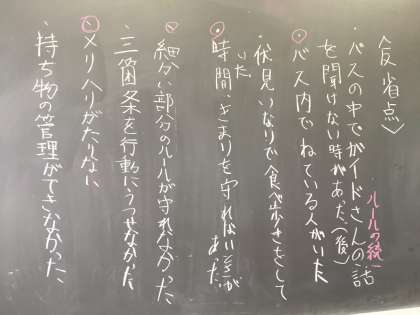 〈反省点〉
ルールの統一
・バスの中でガイドさんの話
を聞けない時があった(後)
・バス内でねている人がいた
・伏見いなりで食べ歩きをして
いた
・時間、きまりを守れないときが
あった
・細かい部分のルールが守れなかった
・三箇条を行動にうつせなかった
・メリハリがたりない
・持ち物の管理ができなかった